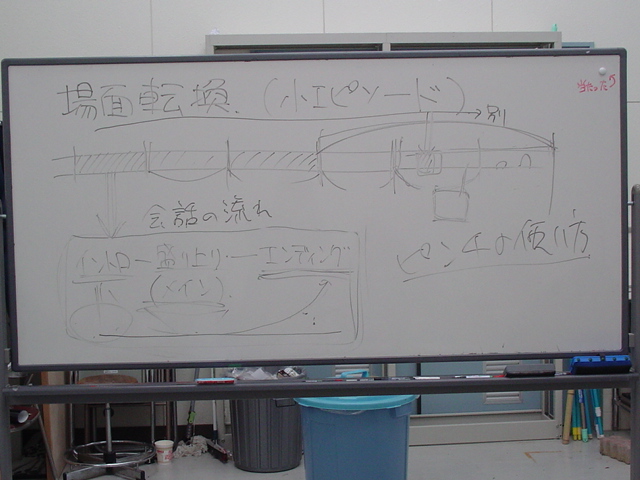 場面転換 (小エピソード)
当たった
→別
会話の流れ
イントロ ー 盛り上り ー エンディング
(メイン)
ピンチの使い方